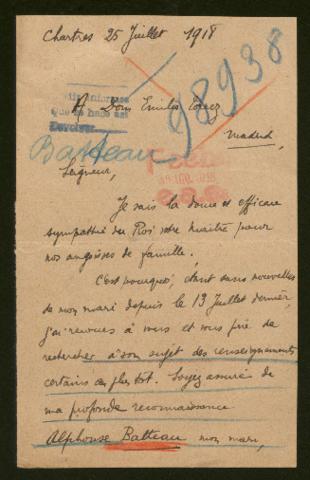 Chartres 25 Juillet 1918
A Dom Emilio
Madrid
98938
Batteau
Seigneur,
Je sais la douce et efficace
sympathie du Roi votre maître pour
nos angoisses de famille.
C'est pourquoi, étant sans nouvelles
de mon mari depuis le 13 Juillet dernier,
j'ai recours à vous et vous prie de
rechercher à son sujet des renseignements
certains au plus tôt. Soyez assuré de
ma profonde reconnaissance
Alphonse Batteau mon mari,